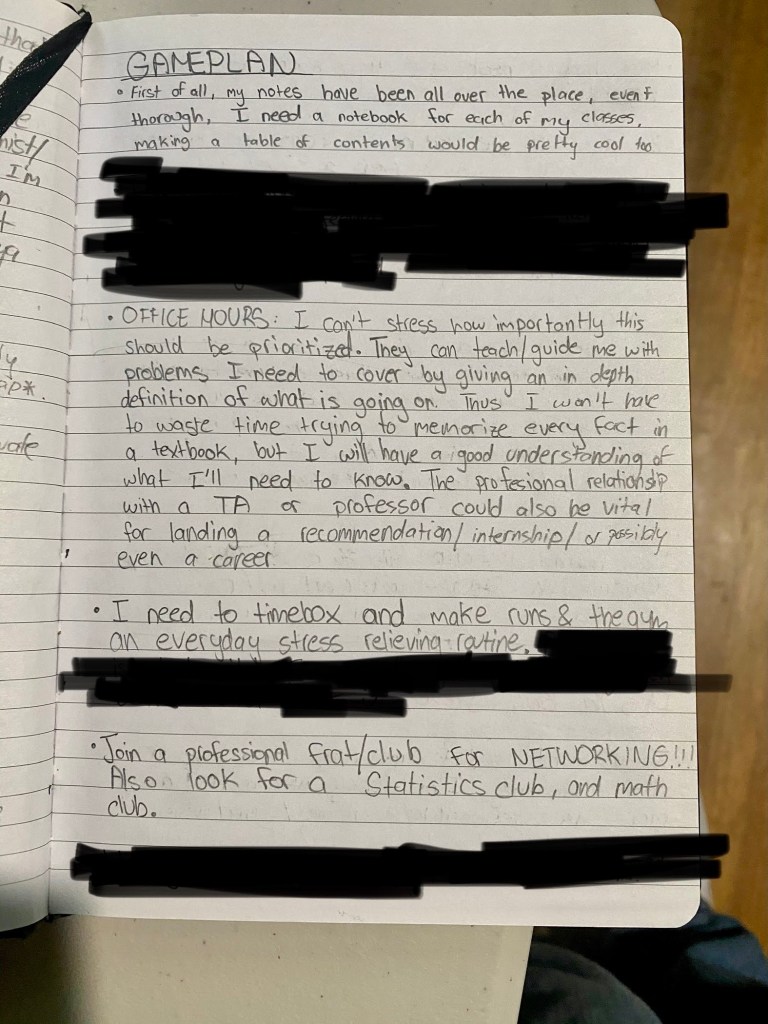 tha
e
hist/
I'm
n
t
ya
y
ap*.
vate
GAMEPLAN
• First of all, my notes have been all over the place, even if
thorough, I need a notebook for each of my classes,
making a table of contents would be pretty cool too
• OFFICE HOURS: I can't stress how importantly this
should be prioritized. They can teach/guide me with
problems I need to cover by giving an in depth
definition of what is going on. Thus I won't have
to waste time trying to memorize every fact in
a textbook, but I will have a good understanding of
what I'll need to know. The profesional relationship
with a TA or professor could also be vital
for landing a recommendation/internship/or possibly
even a career
• I need to timebox and make runs & the gym
an everyday stress relieving routine.
• Join a professional frat/club for NETWORKING!!!
Also look for a Statistics club, and math
club.